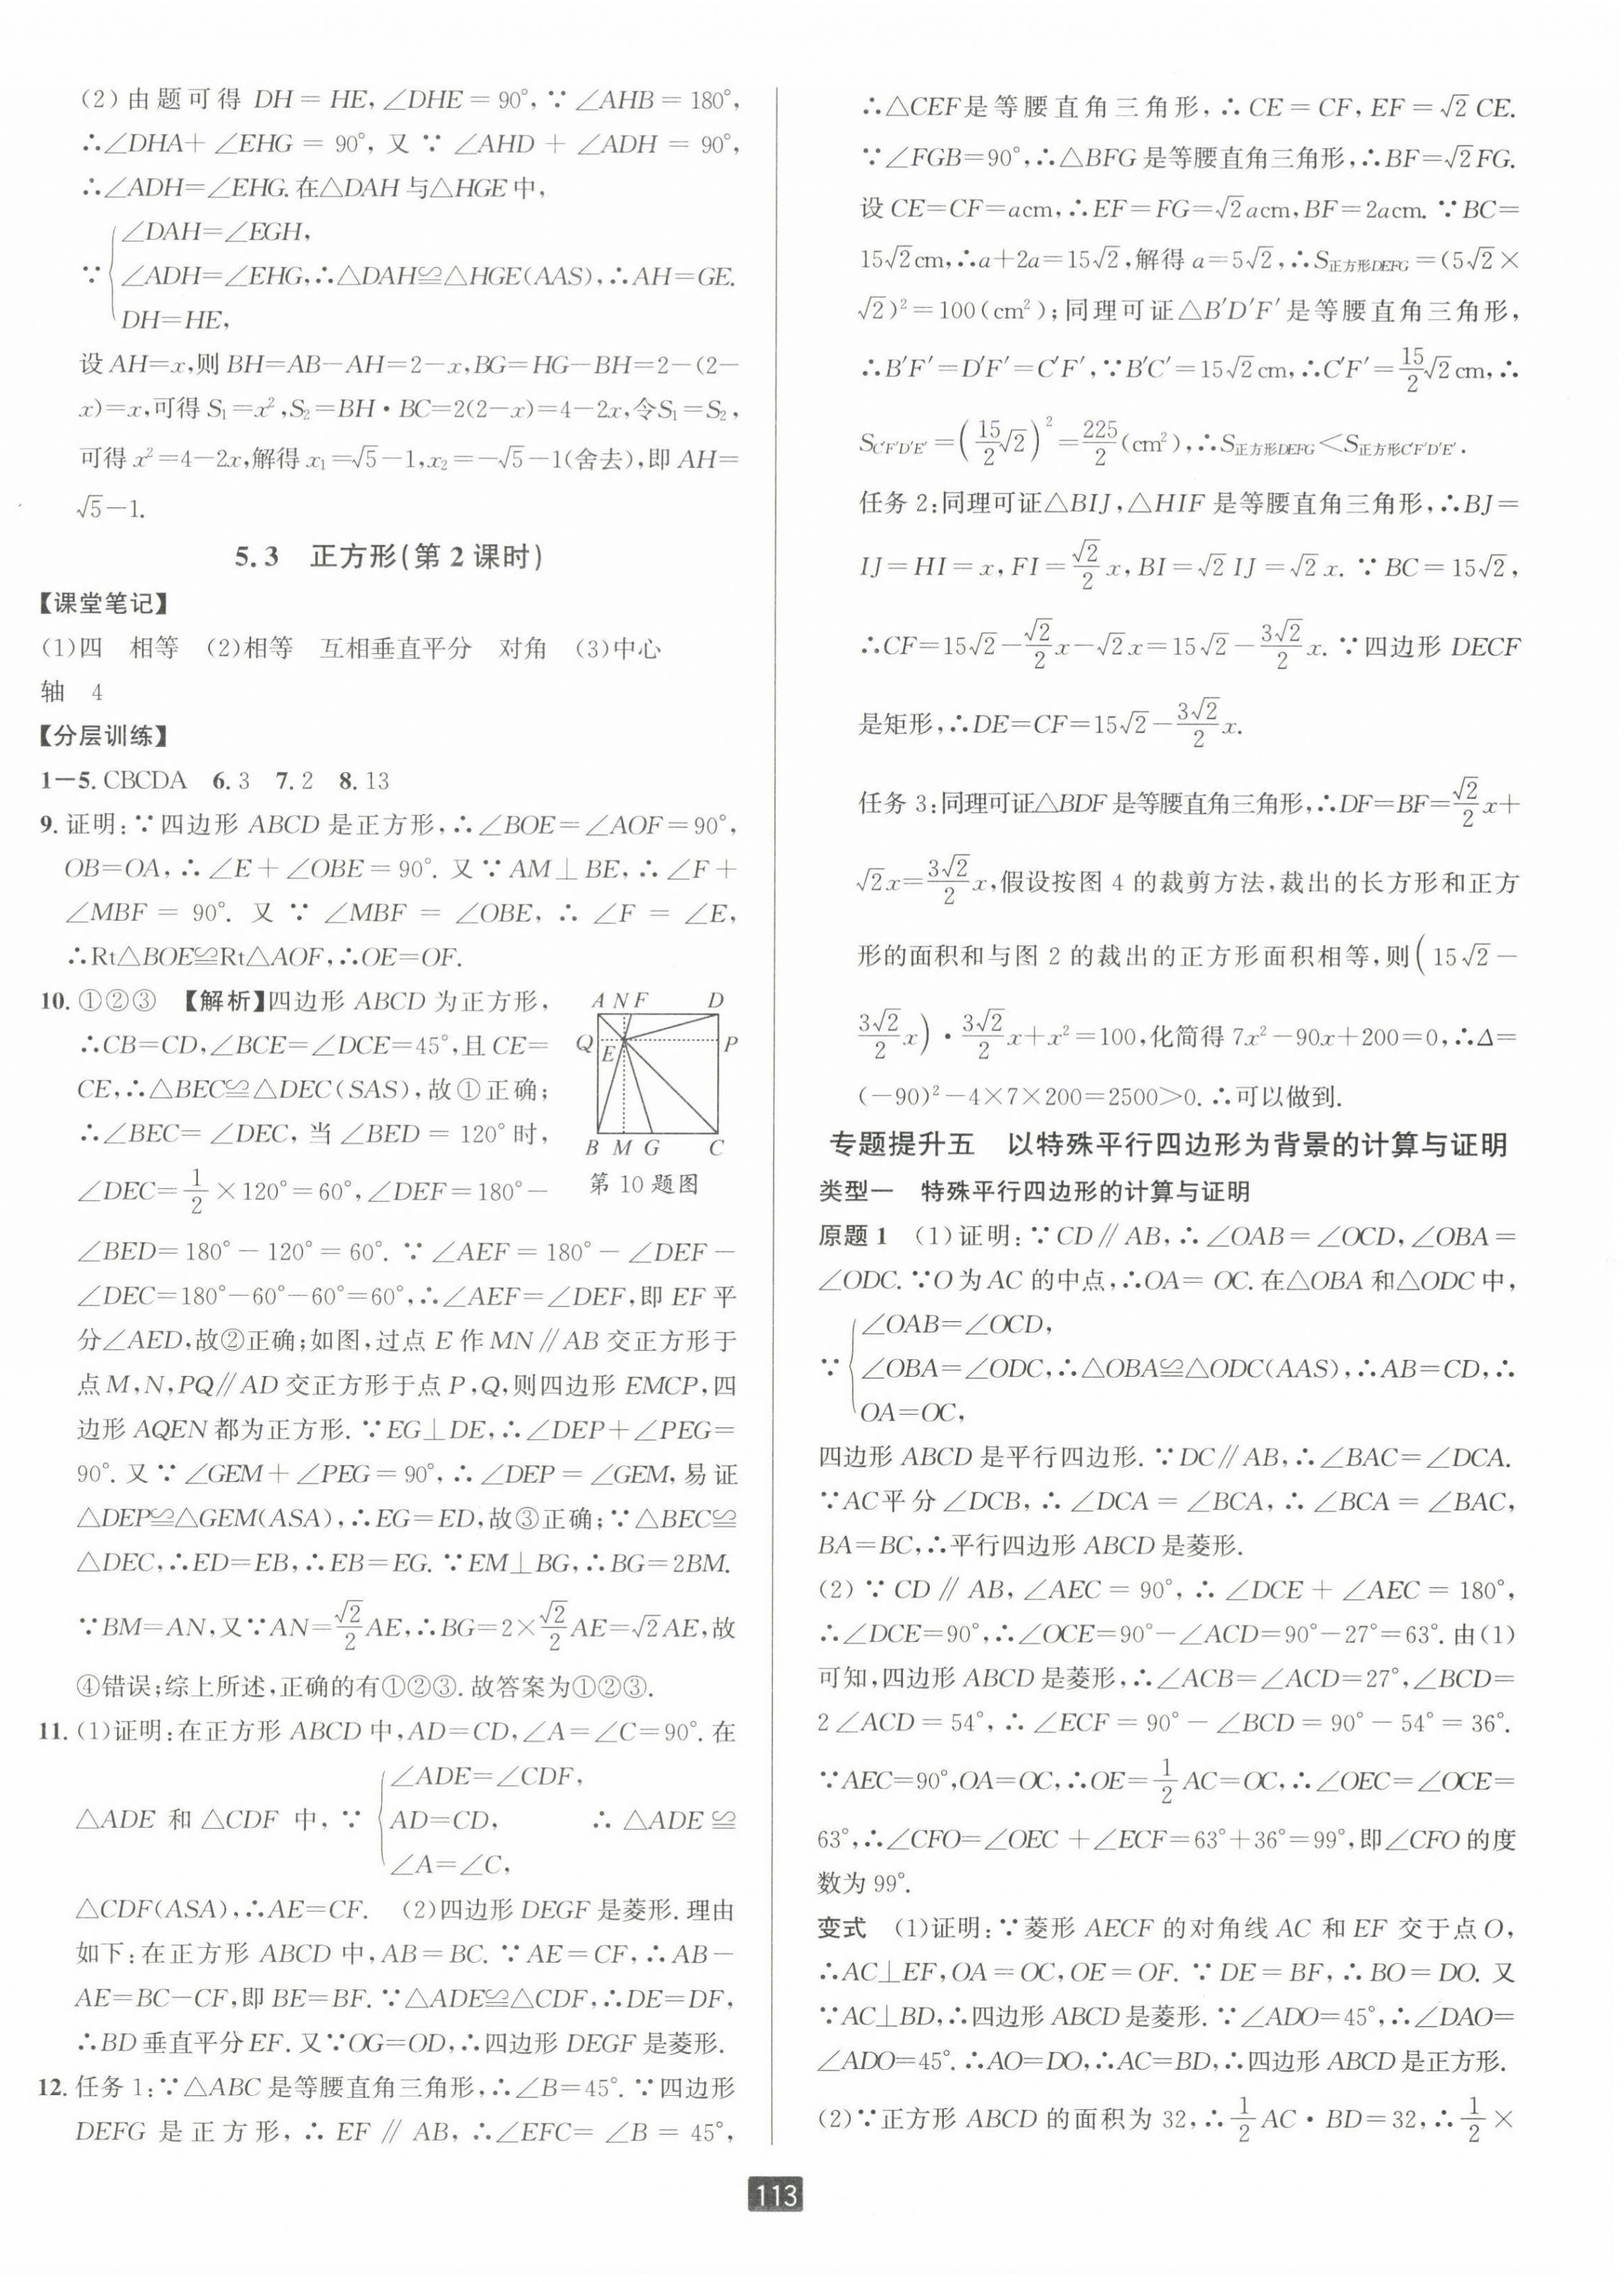 (2)由题可得 DH=HE,∠DHE=90°,∵∠AHB=180°,
∴∠DHA+∠EHG=90°,又∵∠AHD+∠ADH=90°,
∴∠ADH=∠EHG.在△DAH与△HGE中,
∠DAH=∠EGH,
∵ ∠ADH=∠EHG,∴△DAH≌△HGE(AAS),∴AH=GE.
DH=HE,
设AH=x,则BH=AB−AH=2−x,BG=HG−BH=2−(2−
x)=x,可得S₁=x²,S₂=BH·BC=2(2−x)=4−2x,令S₁=S₂,
可得x²=4−2x,解得x₁=√5−1,x₂=−√5−1(舍去),即AH=
√5−1.
5.3 正方形(第2课时)
【课堂笔记】
(1)四 相等 (2)相等 互相垂直平分 对角 (3)中心
轴 4
【分层训练】
1−5.CBCDA 6.3 7.2 8.13
9.证明:∵四边形ABCD是正方形,∴∠BOE=∠AOF=90°,
OB=OA,∴∠E+∠OBE=90°.又∵AM⊥BE,∴∠F+
∠MBF=90°.又∵∠MBF=∠OBE,∴∠F=∠E,
∴Rt△BOE≌Rt△AOF,∴OE=OF.
10.①②③ 【解析】四边形ABCD为正方形,
∴CB=CD,∠BCE=∠DCE=45°,且CE=
CE,∴△BEC≌△DEC(SAS),故①正确;
∴∠BEC=∠DEC,当∠BED=120°时,
∠DEC=1/2×120°=60°,∠DEF=180°−
A N F D
Q E P
B M G C
第10题图
∠BED=180°−120°=60°.∵∠AEF=180°−∠DEF−
∠DEC=180°−60°−60°=60°,∴∠AEF=∠DEF,即EF平
分∠AED,故②正确;如图,过点E作MN∥AB交正方形于
点M,N,PQ∥AD交正方形于点P,Q,则四边形EMCP,四
边形AQEN都为正方形.∵EG⊥DE,∴∠DEP+∠PEG=
90°.又∵∠GEM+∠PEG=90°,∴∠DEP=∠GEM,易证
△DEP≌△GEM(ASA),∴EG=ED,故③正确;∵△BEC≌
△DEC,∴ED=EB,∴EB=EG.∵EM⊥BG,∴BG=2BM.
∵BM=AN,又∵AN=√2/2AE,∴BG=2×√2/2AE=√2AE,故
④错误;综上所述,正确的有①②③.故答案为①②③.
11.(1)证明:在正方形ABCD中,AD=CD,∠A=∠C=90°.在
∠ADE=∠CDF,
△ADE和△CDF中,∵ AD=CD, ∴△ADE≌
∠A=∠C,
△CDF(ASA),∴AE=CF. (2)四边形DEGF是菱形.理由
如下:在正方形ABCD中,AB=BC.∵AE=CF,∴AB−
AE=BC−CF,即BE=BF.∵△ADE≌△CDF,∴DE=DF,
∴BD垂直平分EF.又∵OG=OD,∴四边形DEGF是菱形.
12.任务1:∵△ABC是等腰直角三角形,∴∠B=45°.∵四边形
DEFG是正方形,∴EF∥AB,∴∠EFC=∠B=45°,
∴△CEF是等腰直角三角形,∴CE=CF,EF=√2CE.
∵∠FGB=90°,∴△BFG是等腰直角三角形,∴BF=√2FG.
设CE=CF=acm,∴EF=FG=√2acm,BF=2acm.∵BC=
15√2cm,∴a+2a=15√2,解得a=5√2,∴S正方形DEFG=(5√2×
√2)²=100(cm²);同理可证△B′D′F′是等腰直角三角形,
∴B′F′=D′F′=C′F′,∵B′C′=15√2cm,∴C′F′=15/2√2cm,∴
SC′F′D′E′=(15/2√2)²=225/2(cm²),∴S正方形DEFG<S正方形C′F′D′E′.
任务2:同理可证△BIJ,△HIF是等腰直角三角形,∴BJ=
IJ=HI=x,FI=√2/2x,BI=√2IJ=√2x.∵BC=15√2,
∴CF=15√2−√2/2x−√2x=15√2−3√2/2x.∵四边形DECF
是矩形,∴DE=CF=15√2−3√2/2x.
任务3:同理可证△BDF是等腰直角三角形,∴DF=BF=√2/2x+
√2x=3√2/2x,假设按图4的裁剪方法,裁出的长方形和正方
形的面积和与图2的裁出的正方形面积相等,则(15√2−
3√2/2x)·3√2/2x+x²=100,化简得7x²−90x+200=0,∴Δ=
(−90)²−4×7×200=2500>0.∴可以做到.
专题提升五 以特殊平行四边形为背景的计算与证明
类型一 特殊平行四边形的计算与证明
原题1 (1)证明:∵CD∥AB,∴∠OAB=∠OCD,∠OBA=
∠ODC.∵O为AC的中点,∴OA=OC.在△OBA和△ODC中,
∠OAB=∠OCD,
∵ ∠OBA=∠ODC,∴△OBA≌△ODC(AAS),∴AB=CD,∴
OA=OC,
四边形ABCD是平行四边形.∵DC∥AB,∴∠BAC=∠DCA.
∵AC平分∠DCB,∴∠DCA=∠BCA,∴∠BCA=∠BAC,
BA=BC,∴平行四边形ABCD是菱形.
(2)∵CD∥AB,∠AEC=90°,∴∠DCE+∠AEC=180°,
∴∠DCE=90°,∴∠OCE=90°−∠ACD=90°−27°=63°.由(1)
可知,四边形ABCD是菱形,∴∠ACB=∠ACD=27°,∠BCD=
2∠ACD=54°,∴∠ECF=90°−∠BCD=90°−54°=36°.
∵AEC=90°,OA=OC,∴OE=1/2AC=OC,∴∠OEC=∠OCE=
63°,∴∠CFO=∠OEC+∠ECF=63°+36°=99°,即∠CFO的度
数为99°.
变式 (1)证明:∵菱形AECF的对角线AC和EF交于点O,
∴AC⊥EF,OA=OC,OE=OF.∵DE=BF,∴BO=DO.又
∵AC⊥BD,∴四边形ABCD是菱形.∵∠ADO=45°,∴∠DAO=
∠ADO=45°.∴AO=DO,∴AC=BD,∴四边形ABCD是正方形.
(2)∵正方形ABCD的面积为32,∴1/2AC·BD=32,∴1/2×
113